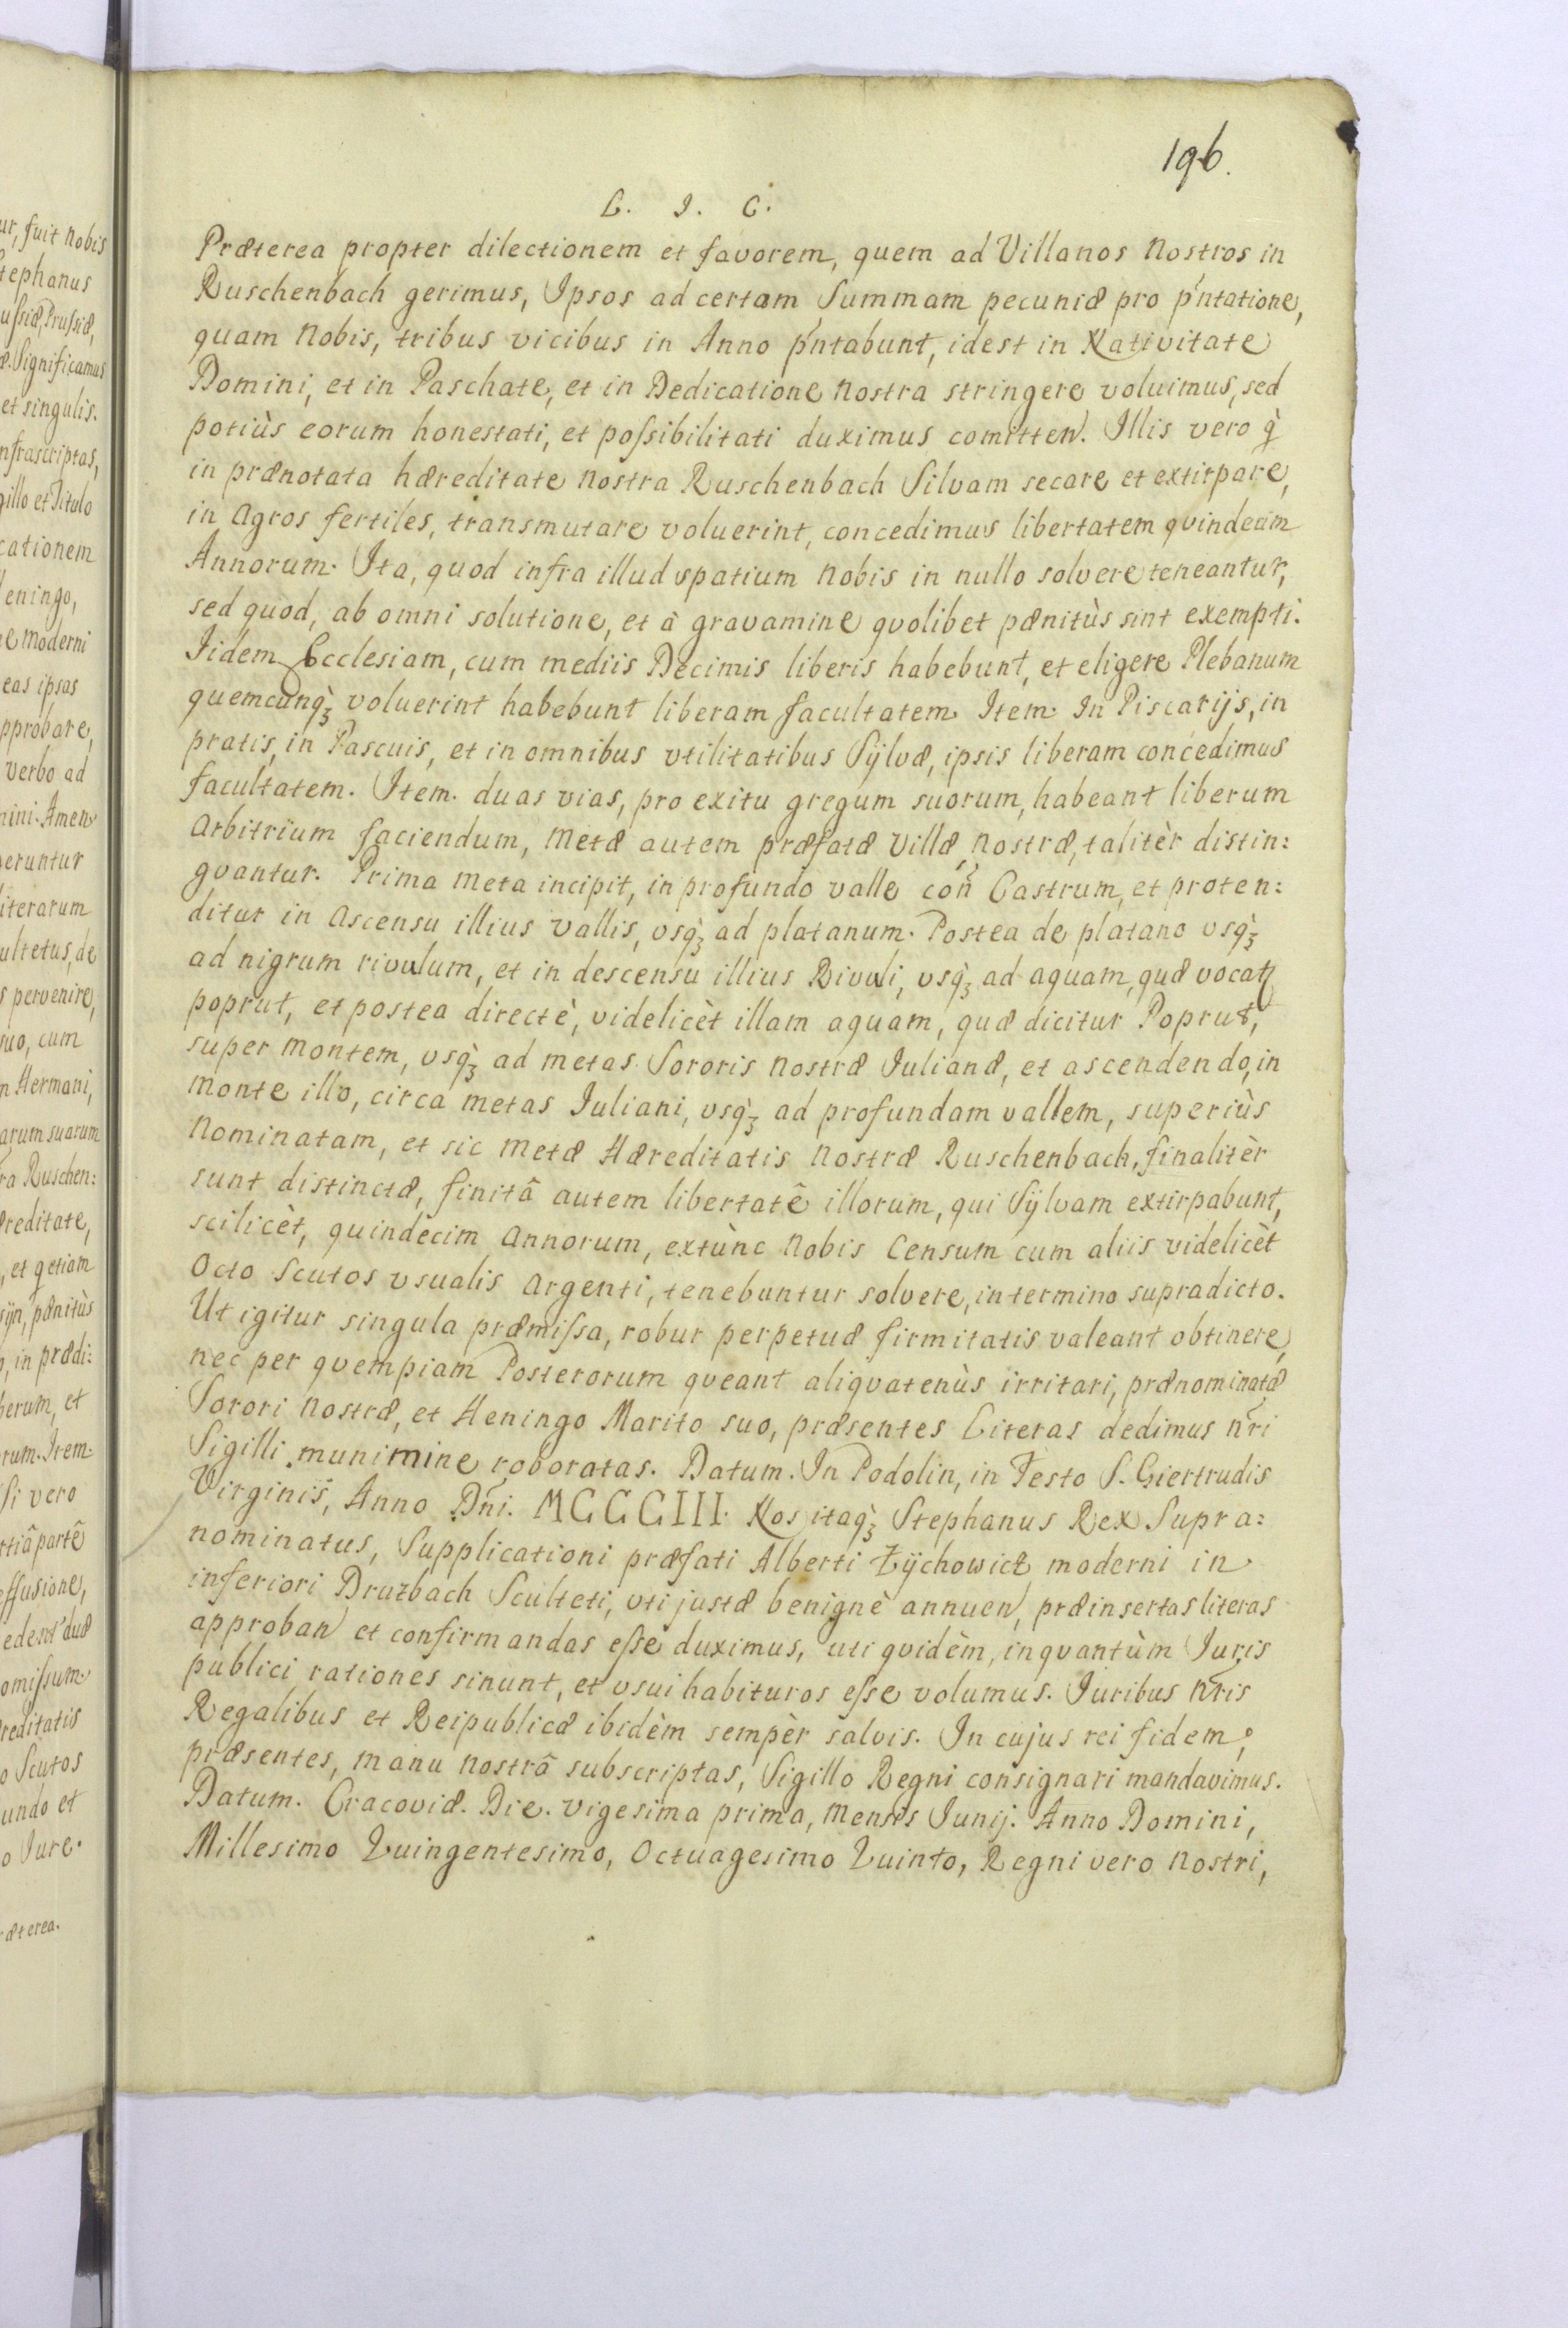 196.
L. J. C.
Præterea propter dilectionem et favorem, quem ad Villanos Nostros in
Ruschenbach gerimus, Ipsos ad certam Summam pecuniæ pro pńtatione,
quam Nobis, tribus vicibus in Anno pńtabunt, idest in Nativitate
Domini, et in Paschate, et in Dedicatione Nostra stringere voluimus, sed
potiùs eorum honestati, et poſsibilitati duximus comitten. Illis vero q̀
in prænotata hæreditate Nostra Ruschenbach Silvam secare et extirpare,
in Agros fertiles, transmutare voluerint, concedimus libertatem quindecim
Annorum. Ita, quod infra illud spatium Nobis in nullo solvere teneantur,
sed quod, ab omni solutione, et à gravamine qvolibet pænitùs sint exempti.
Jidem Ecclesiam, cum mediis Decimis liberis habebunt, et eligere Plebanum
quemcunq̀ꝫ voluerint habebunt liberam facultatem. Item. In Piscarijs, in
pratis, in Pascuis, et in omnibus vtilitatibus Sÿlvæ, ipsis liberam concedimus
facultatem. Item. duas vias, pro exitu gregum suorum, habeant liberum
Arbitrium faciendum, Metæ autem præfatæ Villæ, Nostræ, talitèr distin:
gvantur. Prima Meta incipit, in profundo valle coñ Castrum, et proten:
ditur in Ascensu illius vallis, vsq̀ꝫ ad platanum. Postea de platano vsq̀ꝫ
ad nigrum rivulum, et in descensu illius Rivuli, vsq̀ꝫ ad aquam, quæ vocatɮ
poprut, et postea directè, videlicèt illam aquam, quæ dicitur Poprut,
super Montem, vsq̀ꝫ ad metas Sororis Nostræ Julianæ, et ascendendo, in
Monte illo, circa metas Juliani, vsq̀ꝫ ad profundam vallem, superiùs
Nominatam, et sic Metæ Hæreditatis Nostræ Ruschenbach, finalitèr
sunt distinctæ, finitâ autem libertatê illorum, qui Sÿlvam extirpabunt,
scilicèt, quindecim Annorum, extùnc Nobis Censum cum aliis videlicèt
Octo Scutos vsualis Argenti, tenebuntur solvere, in termino supradicto.
Ut igitur singula præmiſsa, robur perpetuæ firmitatis valeant obtinere,
nec per qvempiam Posterorum qveant aliqvatenùs irritari, prænominatæ
Sorori Nostræ, et Heningo Marito suo, præsentes Literas dedimus nr̃i
Sigilli munimine roboratas. Datum. In Podolin, in Festo S. Giertrudis
Virginis, Anno Dñi. MCCCIII. Nos itaq̀ꝫ Stephanus Rex Supra:
nominatus, Supplicationi præfati Alberti Łÿchowicz moderni in
inferiori Druzbach Sculteti, vti justæ benignè annuen, præinsertas literas
approban et confirmandas eſse duximus, uti qvidèm, inqvantùm Juris
publici rationes sinunt, et vsui habituros eſse volumus. Juribus nr̃is
Regalibus et Reipublicæ ibidèm sempèr salvis. In cujus rei fidem,
præsentes, manu nostrâ subscriptas, Sigillo Regni consignari mandavimus.
Datum. Cracoviæ. Die. vigesima prima, Mensis Junij. Anno Domini,
Millesimo Quingentesimo, Octuagesimo Quinto, Regni vero Nostri,